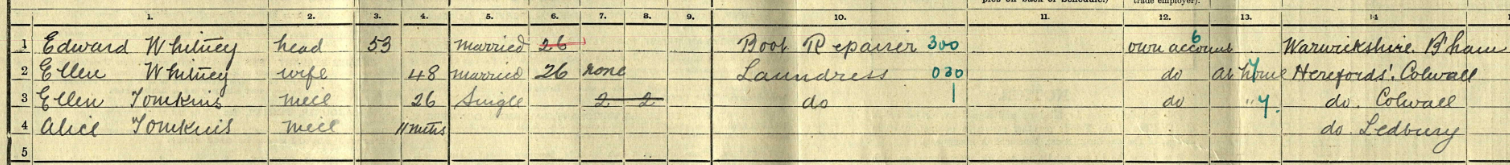 pies on back of Schedule.) trade employer).
1. 2. 3. 4. 5. 6. 7. 8. 9. 10. 11. 12. 13. 14
1 Edward Whitney head 53 married 26 Boot Repairer 300 own account 6 Warwickshire B'ham
2 Ellen Whitney wife 48 married 26 none Laundress 030 do at home 7 Herefords'. Colwall
3 Ellen Tomkins niece 26 Single 2 2 do 1 do " 7. do. Colwall
4 Alice Tomkins niece 11 mths do. Ledbury
5